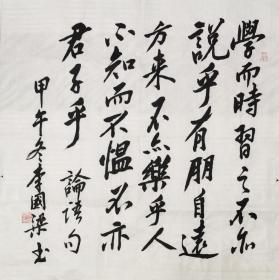 學而時習之不亦
說乎有朋自遠
方來不亦樂乎人
不知而不慍不亦
君子乎 論語句
甲午冬李國樑書